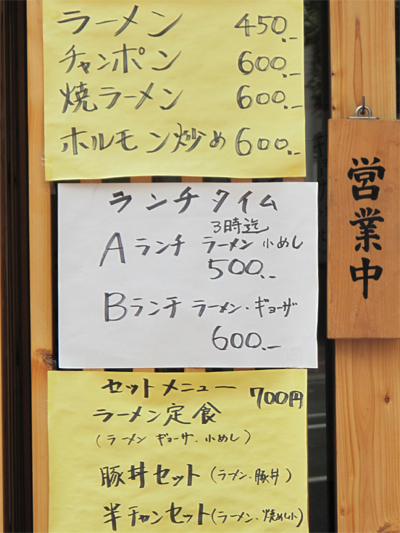 ラーメン 450.-
チャンポン 600.-
焼ラーメン 600.-
ホルモン炒め 600.-
ランチタイム
3時迄
Aランチ ラーメン 小めし
500.-
Bランチ ラーメン・ギョーザ
600.-
セットメニュー 700円
ラーメン定食
(ラーメン ギョーザ、小めし)
豚丼セット(ラーメン、豚丼)
半チャンセット(ラーメン、焼めし小)
営業中